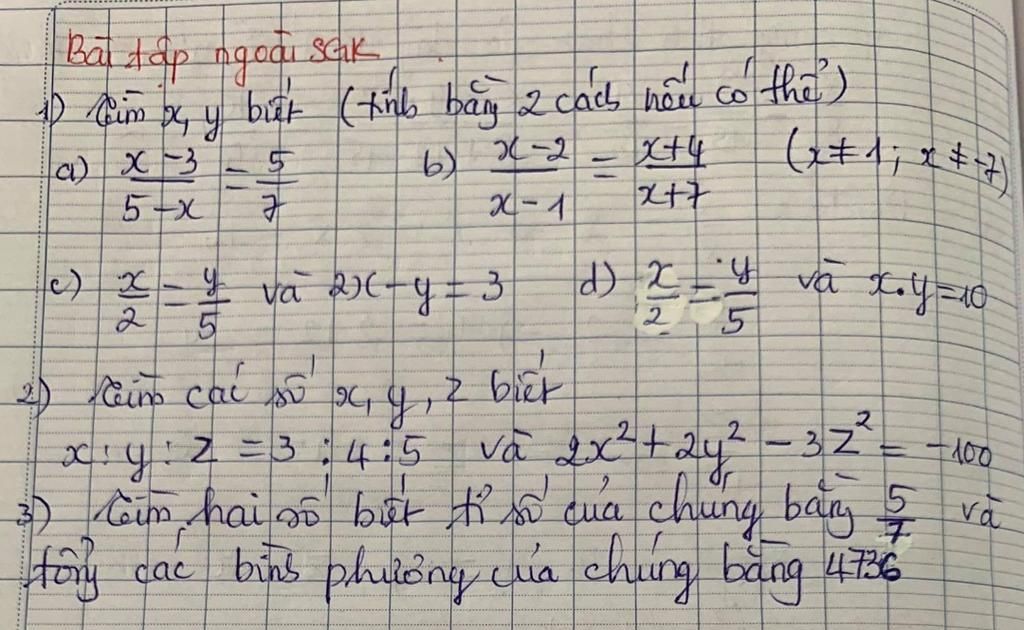 Bài tập ngoài SGK
1) Tìm x, y biết (tính bằng 2 cách nếu có thể)
a) (x - 3)/(5 - x) = 5/7 b) (x - 2)/(x - 1) = (x + 4)/(x + 7) (x ≠ 1; x ≠ -7)
c) x/2 = y/5 và 2x - y = 3 d) x/2 = y/5 và x.y = 10
2) Tìm các số x, y, z biết
x : y : z = 3 : 4 : 5 và 2x² + 2y² - 3z² = -100
3) Tìm hai số biết tỉ số của chúng bằng 5/7 và
tổng các bình phương của chúng bằng 4736